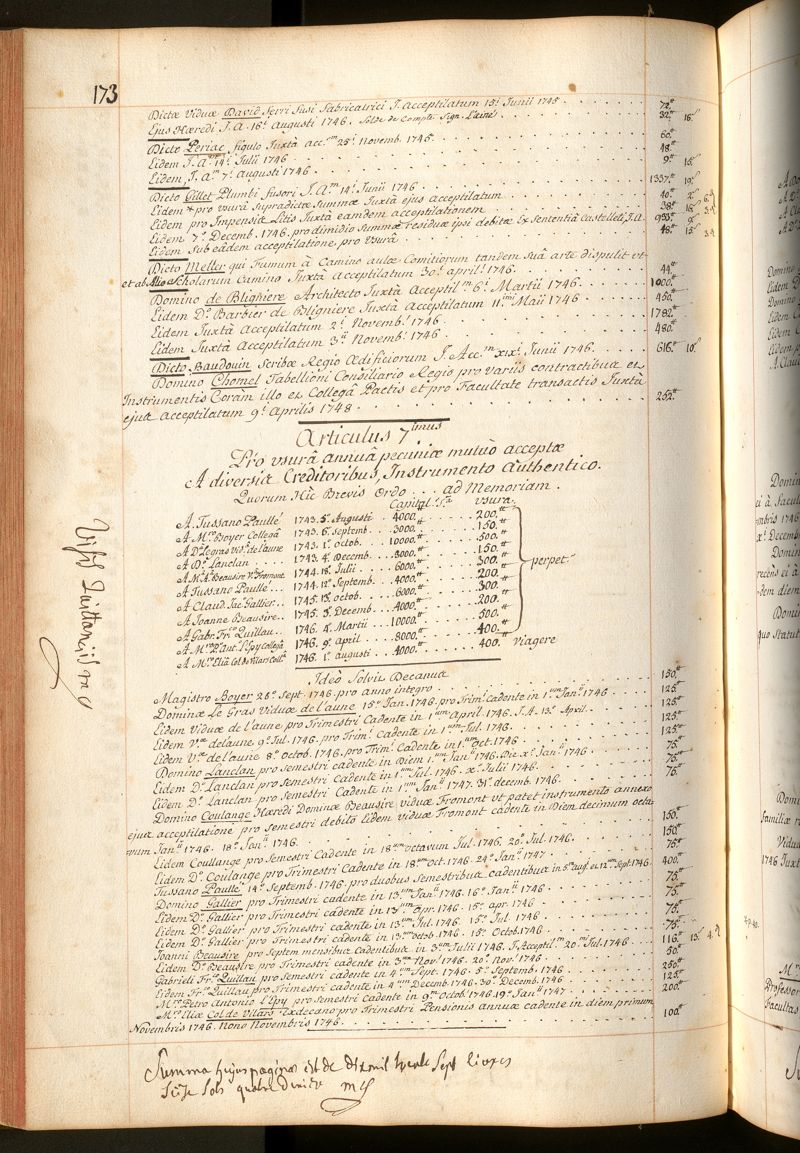 173
Dictæ Viduæ David Ferri Fusi Fabricatrici J. Acceptilatum 15.ª Junii 1745 72.tt
Ejus Hæredi J. A. 16.ª Augusti 1746. Solde de Compte Sign. L'aîné 32.tt 16.s
Dicto Periac, figulo Juxtà acc.m 25.ª Novemb. 1745 60.tt
Eidem J. A.m 14.ª Julii 1746 48.tt
Eidem J. A.m 7.ª Augusti 1746 9.tt 15.s
Dicto Gillet Plumbi fusori J. A.m 14.ª Junii 1746 1337.tt 19.s
Eidem + pro vsurâ Supradictæ Summæ Juxtà ejus acceptilatum 40.tt 2.s 6.d
Eidem pro Impensis Litis Juxtà eamdem acceptilationem 38.tt 16.s 3.d
Eidem 7.ª Decemb. 1746. pro dimidio Summæ residuæ ipsi debitæ Ex Sententiâ Castelleti J. A. 953.tt 9.s
Eidem Sub eâdem acceptilatione pro Vsurâ 48.tt 13.s 3.d
Dicto Meller qui Fumum à Camino aulæ Comitiorum tandem Suâ arte dispulit vt
et ab Alio Scholarum Camino Juxtà acceptilatum 30.ª april.ª 1746. 44.tt
Domino de Bligniere Architecto Juxtà Acceptil.m 6.ª Martii 1746 1000.tt
Eidem D.º Barbier de Bligniere Juxtà Acceptilatum 11.imi Maii 1746 450.tt
Eidem Juxtà Acceptilatum 2.ª Novemb.ª 1746 1782.tt
Eidem Juxtà Acceptilatum 3.ª Novemb.ª 1746 480.tt
Dicto Baudouin Scribæ Regio Ædificiorum J. Acc.m xix.ª Junii 1746. 616.tt 10.s
Domino Chomel Tabellioni Consiliario Regio pro Variis contractibus et
Instrumentis Coràm illo et Collegâ Pactis et pro Facultate transactis Juxtà
ejus Acceptilatum 9.ª Aprilis 1748 252.tt
Articulus 7.imus
Pro vsurâ annuâ pecuniæ mutuò acceptæ
A diversis Creditoribus, Instrumento Authentico.
Quorum Hic Brevis Ordo ... ad Memoriam.
Capital.ª S.a vsura
A Tussano Paullé 1743. 5.ª Augusti 4000.tt 200.tt
A M.ro Boyer Collegâ 1743. 6.ª Septemb. 3000.tt 150.tt
A D.ª Le gras vid.ª de l'aune 1743. 1.ª octob. 10000.tt 500.tt
A D.º Lanclan 1743. 4.ª Decemb. 3000.tt 150.tt
A M.ª A.ª Beausire V.ª Fromont 1744. 18.ª Julii 6000.tt 300.tt perpet.
A Tussano Paullé 1744. 12.ª Septemb. 4000.tt 200.tt
A Claud. Jac. Gallier 1745. 13.ª octob. 6000.tt 300.tt
A Joanne Beausire 1745. 3.ª Decemb. 4000.tt 200.tt
A Gabr. Fr.co Quillau 1746. 4.ª Martii 10000.tt 500.tt
A M.ro P. Ant. L'Epy Collegâ 1746. 9.ª april 8000.tt 400.tt
A M.ro Eliâ Col de Vilars Coll.â 1746. 1.ª augusti 4000.tt 400. Viagere
Ideò Solvit Decanus
Magistro Boyer 25.ª Sept. 1746. pro anno integro 150.tt
Dominæ Le Gras Viduæ de l'aune 15.ª Jan. 1746. pro Trim.ª Cadente in 1.um Jan.ii 1746 125.tt
Eidem Viduæ de l'aune pro Trimestri Cadente in 1.um april. 1746. J. A. 13.ª April. 125.tt
Eidem V.æ de l'aune 9.ª Jul. 1746. pro Trim.ª Cadente in 1.um Jul. 1746 125.tt
Eidem V.æ de l'aune 8.ª octob. 1746. pro Trim.ª Cadente in 1.um Oct. 1746 125.tt
Domino Lanclan pro Semestri Cadente in Diem 1.um Jan.ii 1746. Die x.ª Jan.ii 1746 75.tt
Eidem D.º Lanclan pro Semestri Cadente in 1.um Jul. 1746. x.ª Julii 1746 75.tt
Eidem D.º Lanclan pro Semestri Cadente in 1.um Jan.ii 1747. 31.ª decemb. 1746. 75.tt
Domino Coulange Hæredi Dominæ Beausire viduæ Fromont vt patet instrumento annexo
ejus acceptilatione pro Semestri debito Eidem viduæ Fromont cadente in Diem decimum octa
vum Jan.ii 1746. 18.ª Jan.ii 1746. 150.tt
Eidem Coullange pro Semestri Cadente in 18.um octavum Jul. 1746. 20.ª Jul. 1746. 150.tt
Eidem D.º Coulange pro Trimestri Cadente in 18.um oct. 1746. 24.ª Jan.ii 1747 75.tt
Tussano Paullé 14.ª Septemb. 1746. pro duobus Semestribus cadentibus in 5.um aug. et 12.um Sept. 1746 400.tt
Domino Gallier pro Trimestri cadente in 13.um Jan.ii 1746. 16.ª Jan.ii 1746 75.tt
Eidem D.º Gallier pro Trimestri cadente in 13.um Apr. 1746. 15.ª apr. 1746 75.tt
Eidem D.º Gallier pro Trimestri cadente in 13.um Jul. 1746. 15.ª Jul. 1746 75.tt
Eidem D.º Gallier pro Trimestri cadente in 13.um octob. 1746. 15.ª Octob. 1746 75.tt
Joanni Beausire pro Septem mensibus cadentibus in 3.um Julii 1746. J. Acceptil.m 20.ª Jul. 1746 116.tt 13.s 4.d
Eidem D.º Beausire pro Trimestri cadente in 3.um Nov. 1746. 20.ª Nov. 1746 50.tt
Gabrieli Fr.co Quillau pro Semestri cadente in 4.um Sept. 1746. 5.ª Septemb. 1746 250.tt
Eidem Fr.co Quillau pro Trimestri cadente in 4.um Decemb. 1746. 30.ª Decemb. 1746 125.tt
M.ro Petro Antonio L'Epy pro Semestri cadente in 9.um Octob. 1746. 19.ª Jan.ii 1747 200.tt
M.ro Eliæ Col de Vilars Exdecano pro Trimestri Pensionis annuæ cadente in diem primum
Novembris 1746. Nono Novembris 1746. 100.tt
Summa hujus paginæ est de dix mil trente Sept livres
Seize Sols quatre deniers